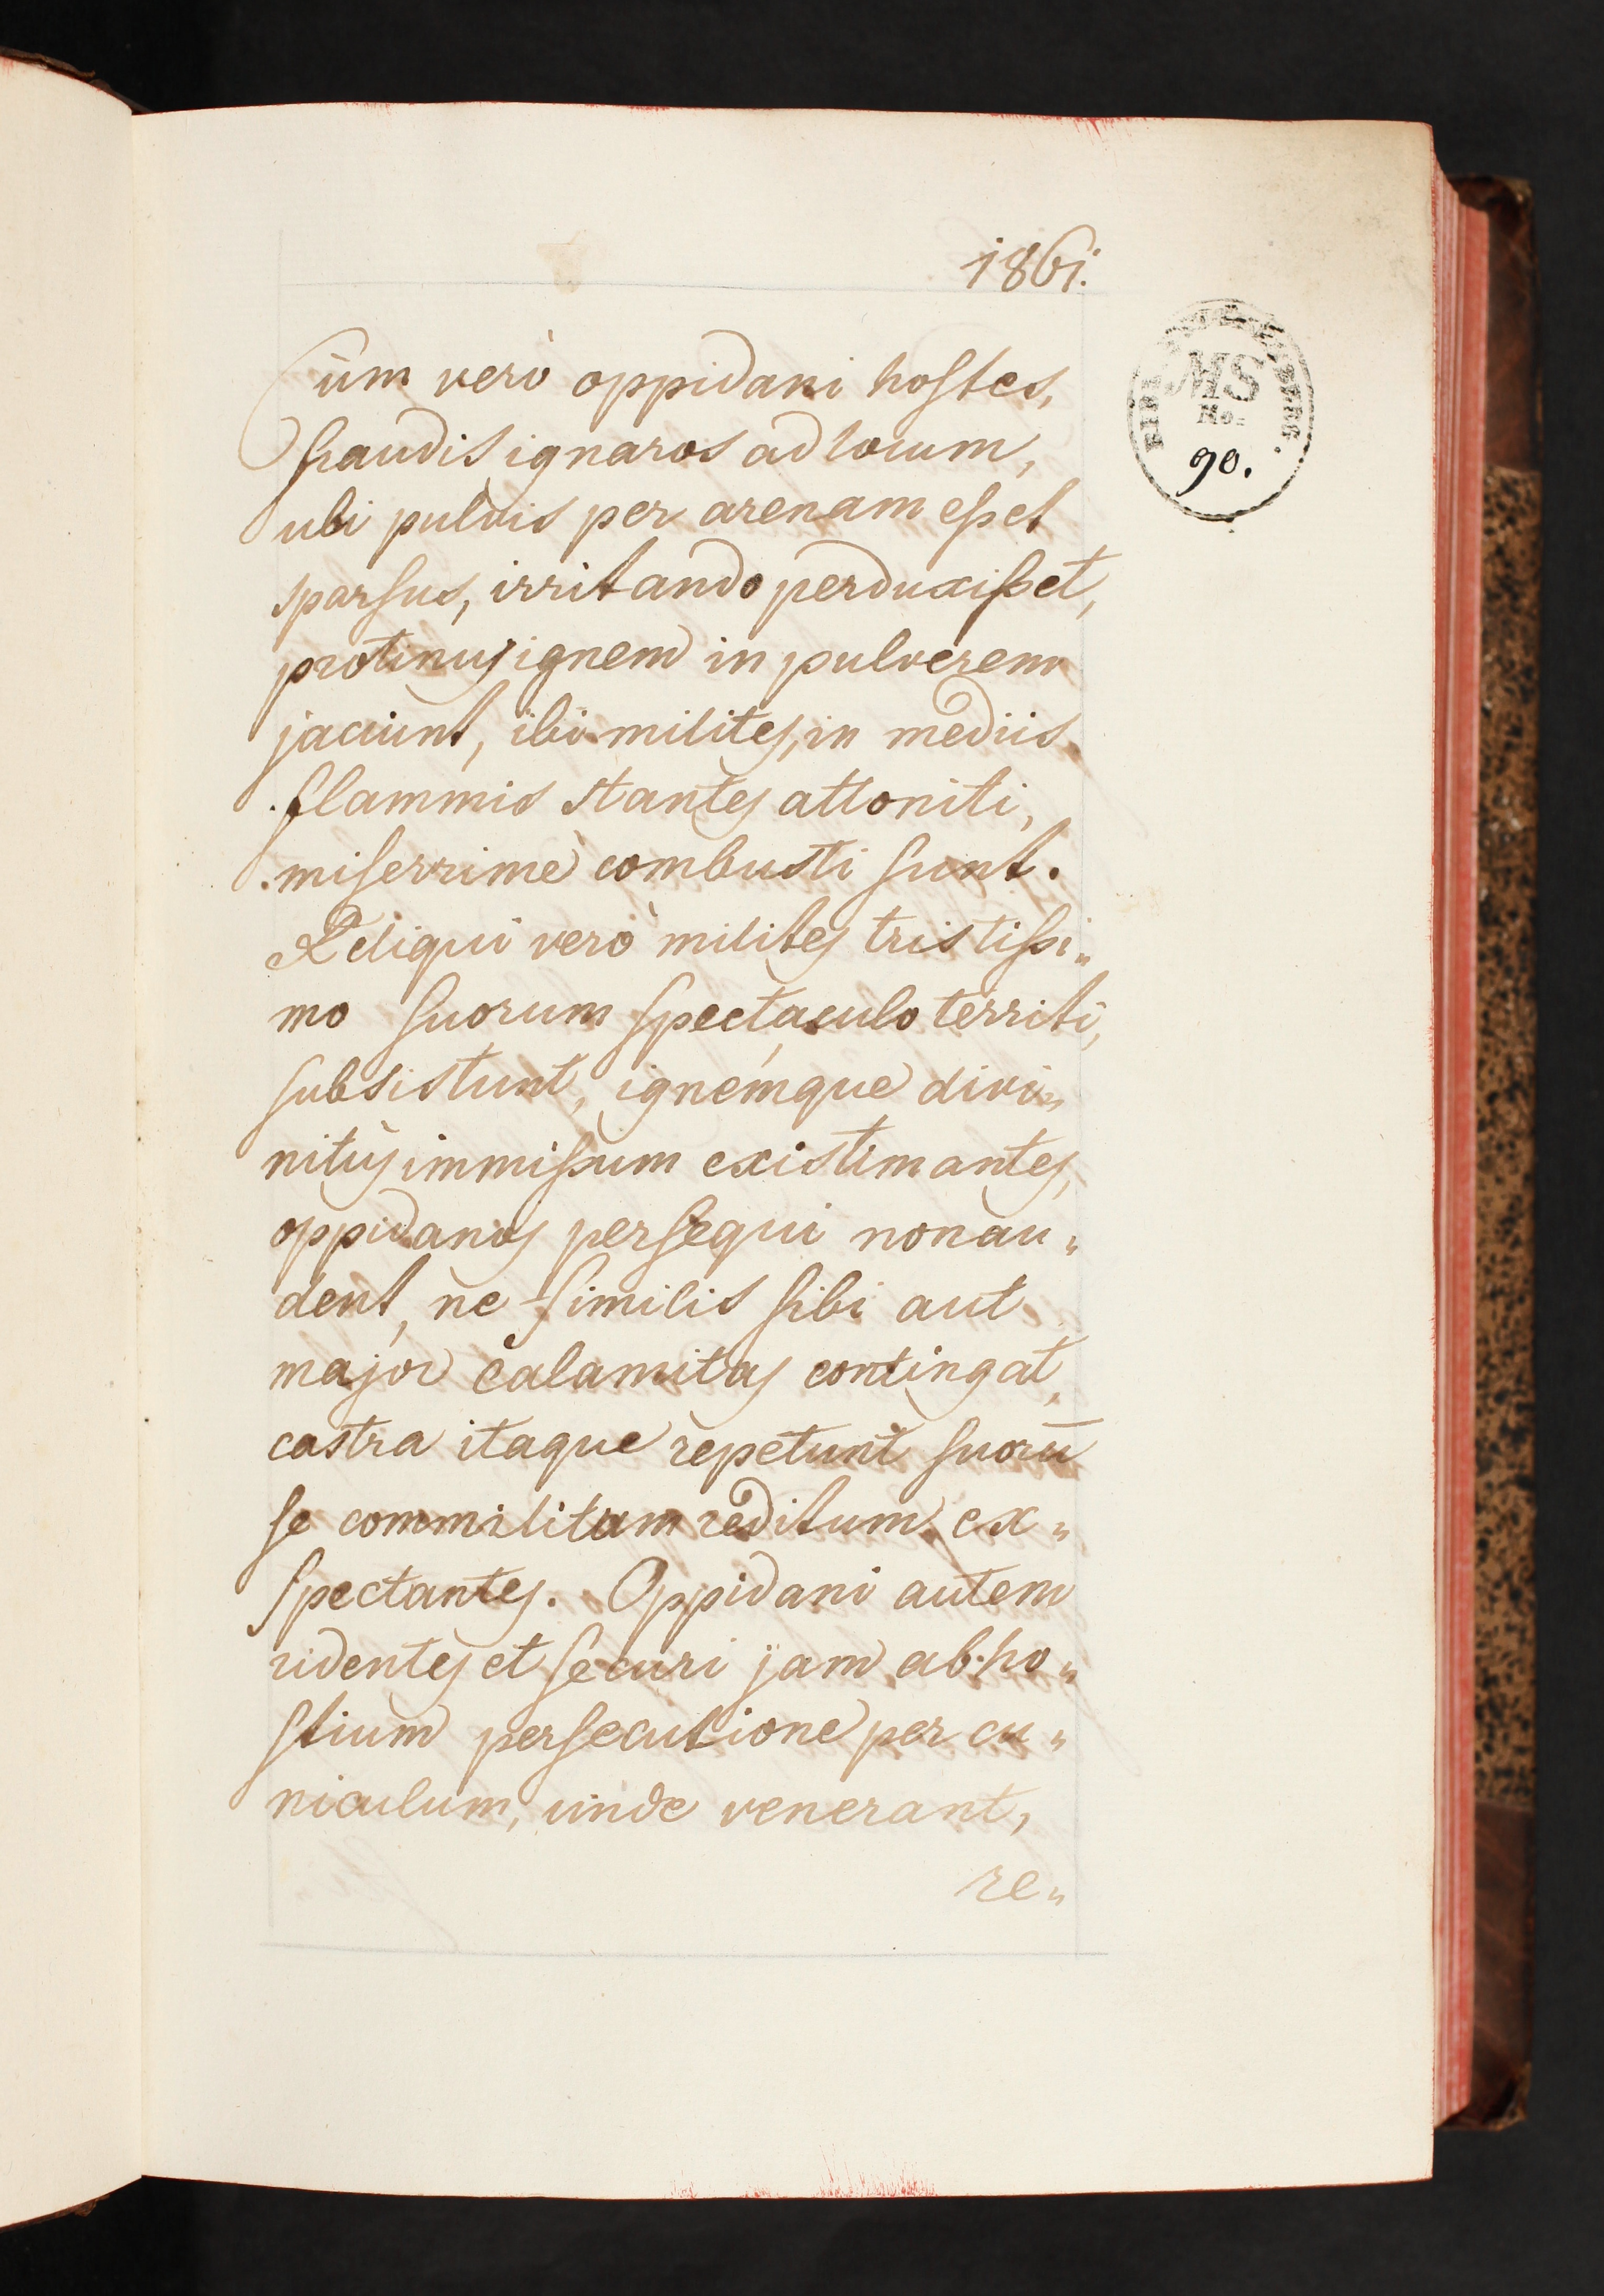 1861.
Cùm verò oppidani hostes,
fraudis ignaros ad locum,
ubi pulvis per arenam esset
sparsus, irritando perduxisset,
protinus ignem in pulverem
jaciunt, ibi milites, in mediis
flammis stantes attoniti,
miserrimè combusti sunt.
Reliqui verò milites tristissi„
mo suorum spectaculo territi,
subsistunt, ignémque divi„
nitùs immissum existimantes,
oppidanos persequi non au„
dent, ne similis sibi aut
major calamitas contingat,
castra itaque repetunt suorū
se commilitum reditum ex„
spectantes. Oppidani autem
ridentes et securi jam ab ho„
stium persecutione per cu„
niculum, unde venerant,
re„
MS
No.
90.